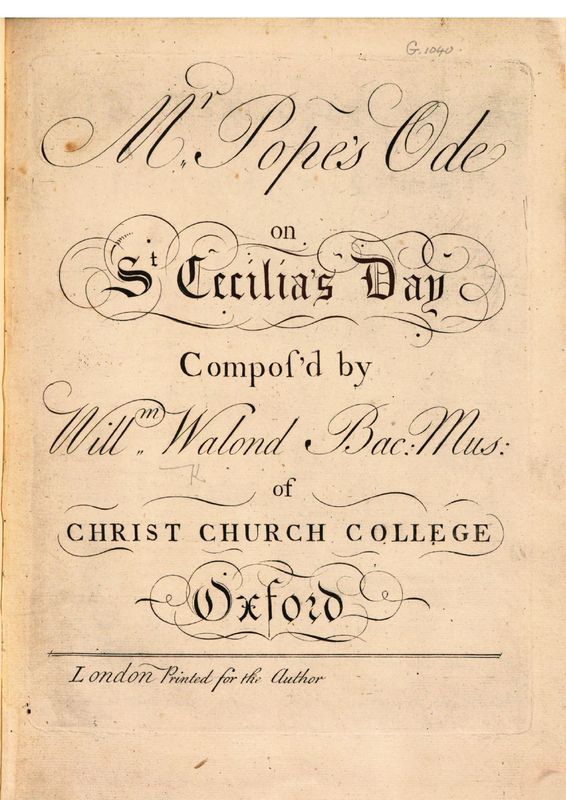 G. 1040.
Mr. Pope's Ode
on
St Cecilia's Day
Compoſ'd by
Willm. Walond Bac: Mus:
of
CHRIST CHURCH COLLEGE
Oxford
London Printed for the Author